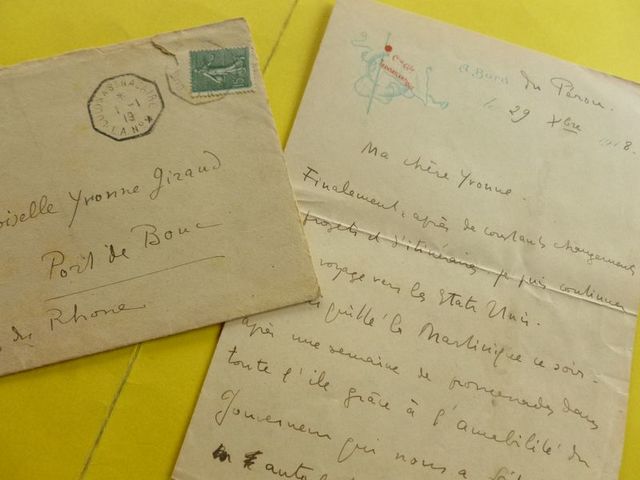 COLON A ST NAZAIRE
1 - 1
19
L.A No
oiselle Yvonne Giraud
Port de Bouc
du Rhone
Cie Gle
A Bord du Pérou
le 29 Xbre 1918.
Ma chère Yvonne.
Finalement, après de constants changements
projets et d'itinéraires je puis continuer
voyage vers les Etats Unis.
quitté la Martinique ce soir.
après une semaine de promenades dans
toute l'ile grâce à l'amabilité du
Gouverneur qui nous a fait
auto